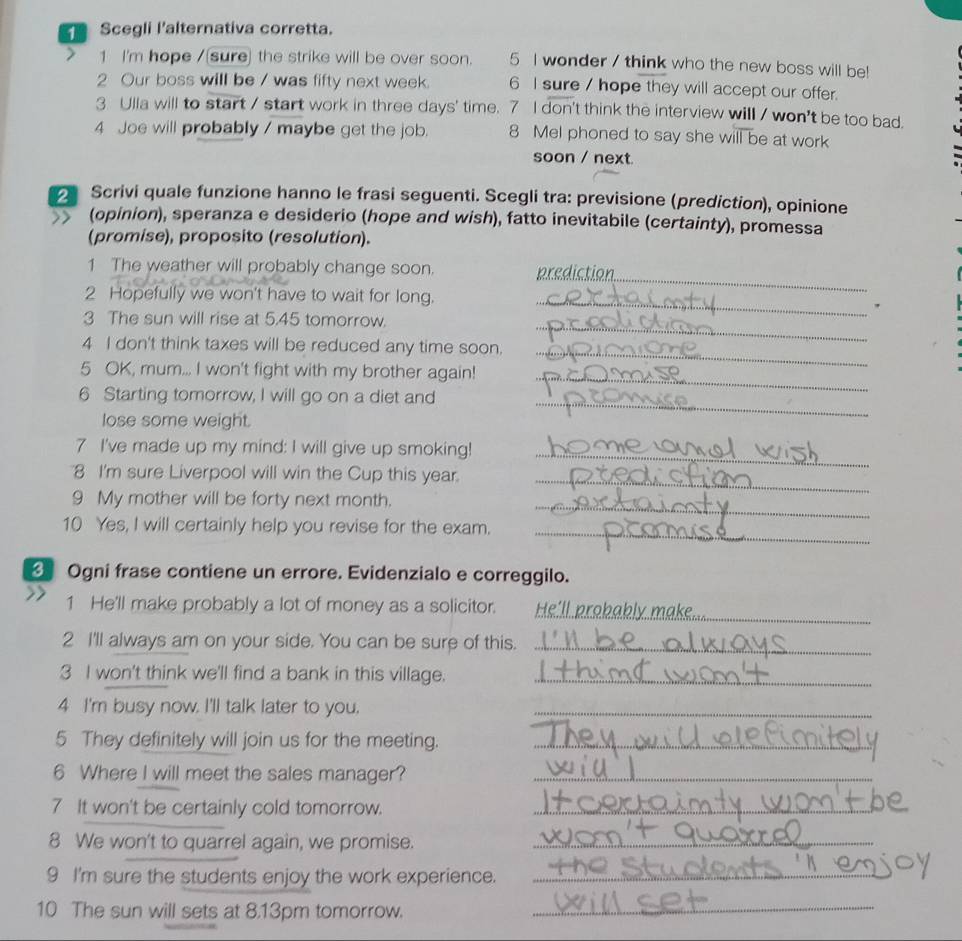 1 Scegli l'alternativa corretta.
1 I'm hope / sure the strike will be over soon.
2 Our boss will be / was fifty next week.
3 Ulla will to start / start work in three days' time.
4 Joe will probably / maybe get the job.
5 I wonder / think who the new boss will be!
6 I sure / hope they will accept our offer.
7 I don't think the interview will / won't be too bad.
8 Mel phoned to say she will be at work
soon / next.
2 Scrivi quale funzione hanno le frasi seguenti. Scegli tra: previsione (prediction), opinione
(opinion), speranza e desiderio (hope and wish), fatto inevitabile (certainty), promessa
(promise), proposito (resolution).
1 The weather will probably change soon. prediction
2 Hopefully we won't have to wait for long. certaimty
3 The sun will rise at 5.45 tomorrow. prediction
4 I don't think taxes will be reduced any time soon. opimione
5 OK, mum... I won't fight with my brother again! promise
6 Starting tomorrow, I will go on a diet and promise
lose some weight.
7 I've made up my mind: I will give up smoking! home and wish
8 I'm sure Liverpool will win the Cup this year. prediction
9 My mother will be forty next month. certaimty
10 Yes, I will certainly help you revise for the exam. promise
3 Ogni frase contiene un errore. Evidenzialo e correggilo.
1 He'll make probably a lot of money as a solicitor. He'll probably make...
2 I'll always am on your side. You can be sure of this. I'll be always
3 I won't think we'll find a bank in this village. I thind won't
4 I'm busy now. I'll talk later to you.
5 They definitely will join us for the meeting. They will defimitely
6 Where I will meet the sales manager? will I
7 It won't be certainly cold tomorrow. It certaimty won't be
8 We won't to quarrel again, we promise. won't quarrel
9 I'm sure the students enjoy the work experience. the students 'll enjoy
10 The sun will sets at 8.13pm tomorrow. will set